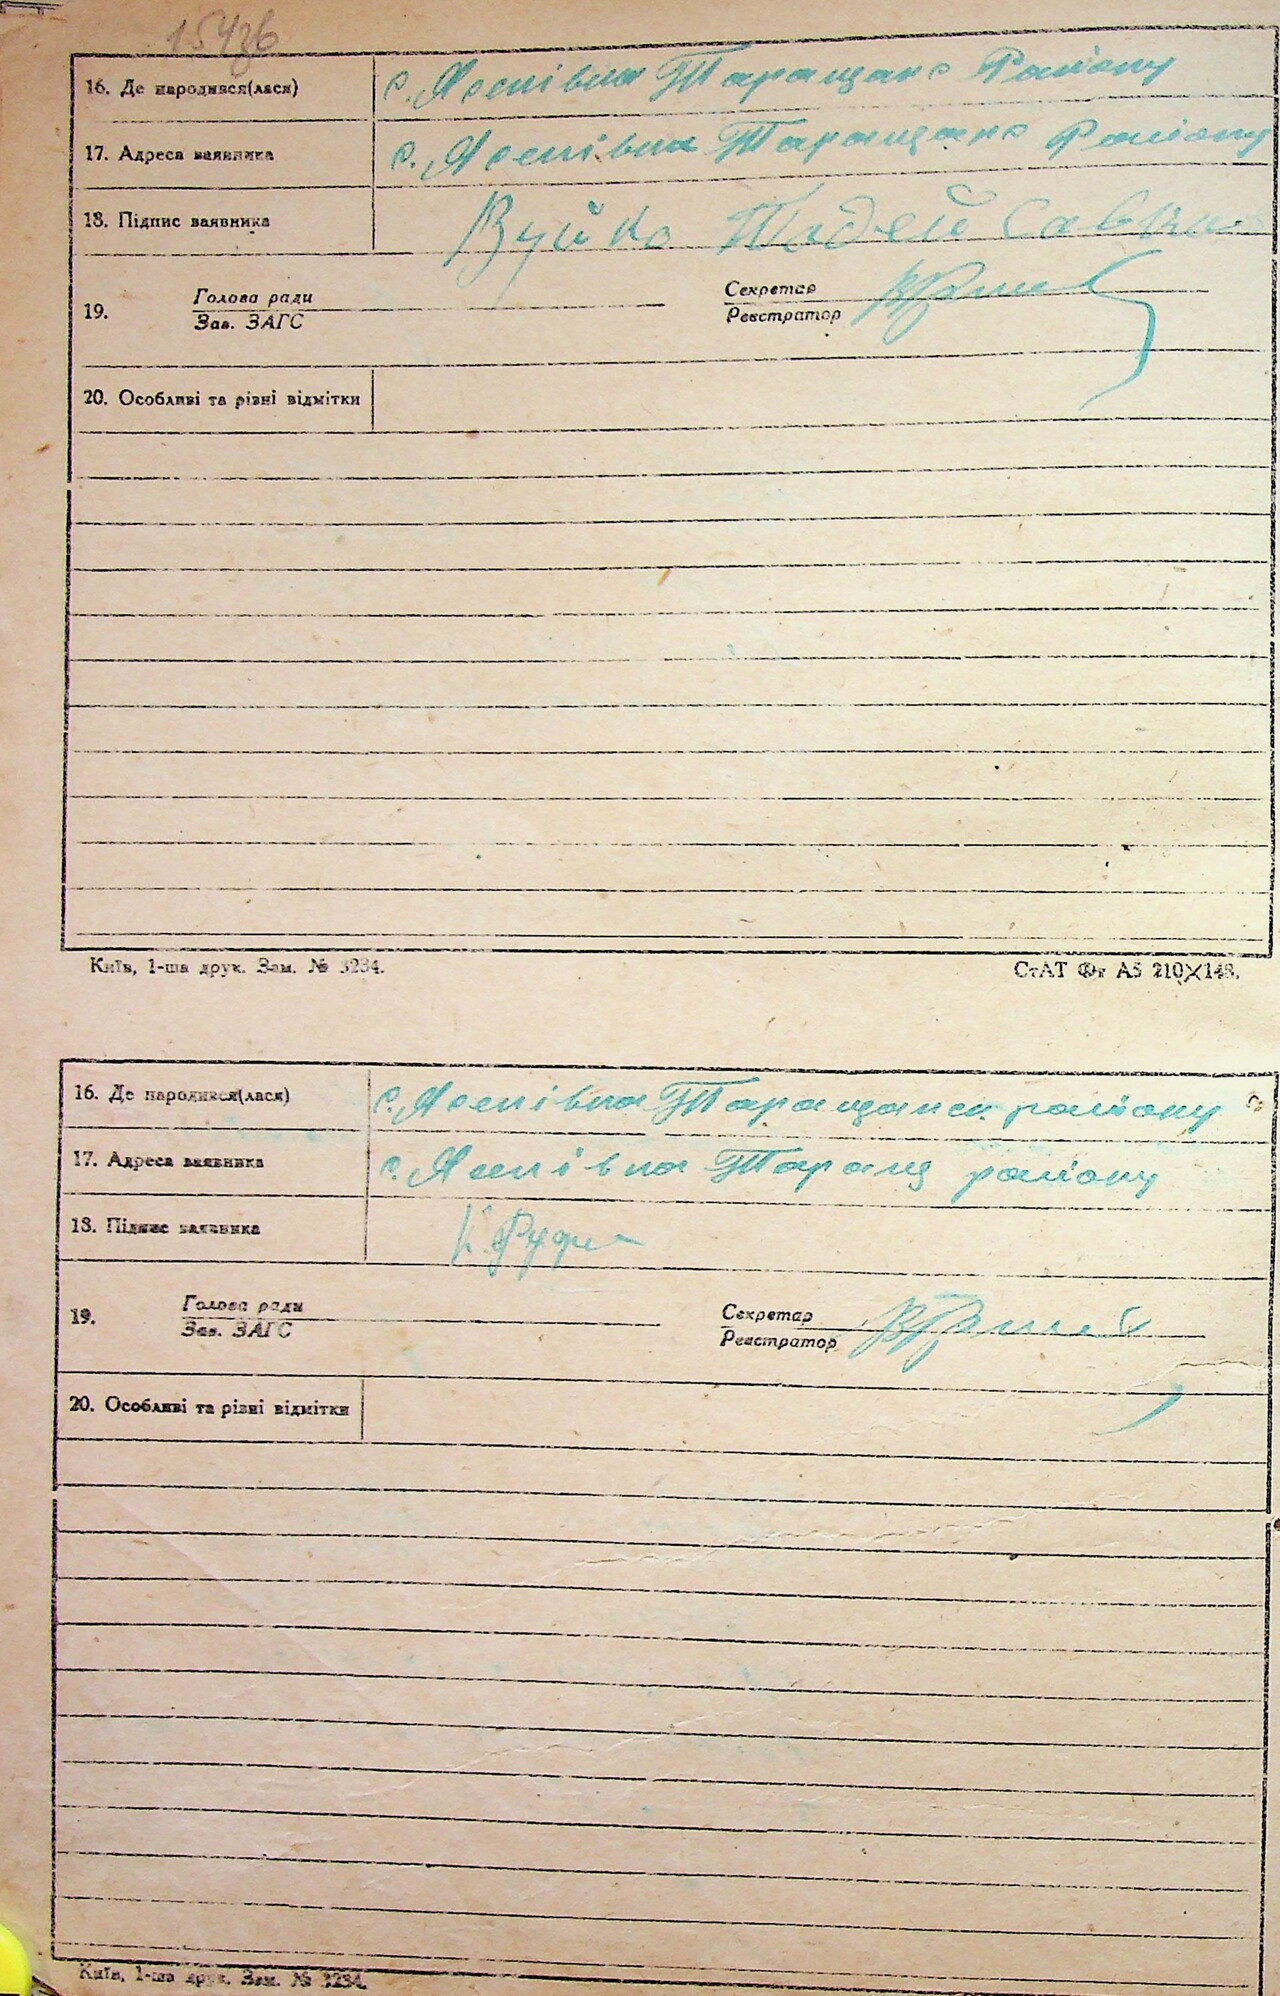 16. Де народився(лася) с. Ясенівка Таращанс Району
17. Адреса заявника с. Ясенівка Таращанс Району
18. Підпис заявника Вуйко Тадей Савк
19. Голова ради Секретар
Зав. ЗАГС Реєстратор
20. Особливі та різні відмітки
Київ, 1-ша друк. Зам. № 3234. СтАТ Фт А5 210×148.
16. Де народився(лася) с. Ясенівка Таращанськ району
17. Адреса заявника с. Ясенівка Таращ району
18. Підпис заявника
19. Голова ради Секретар
Зав. ЗАГС Реєстратор
20. Особливі та різні відмітки
Київ, 1-ша друк. Зам. № 3234.